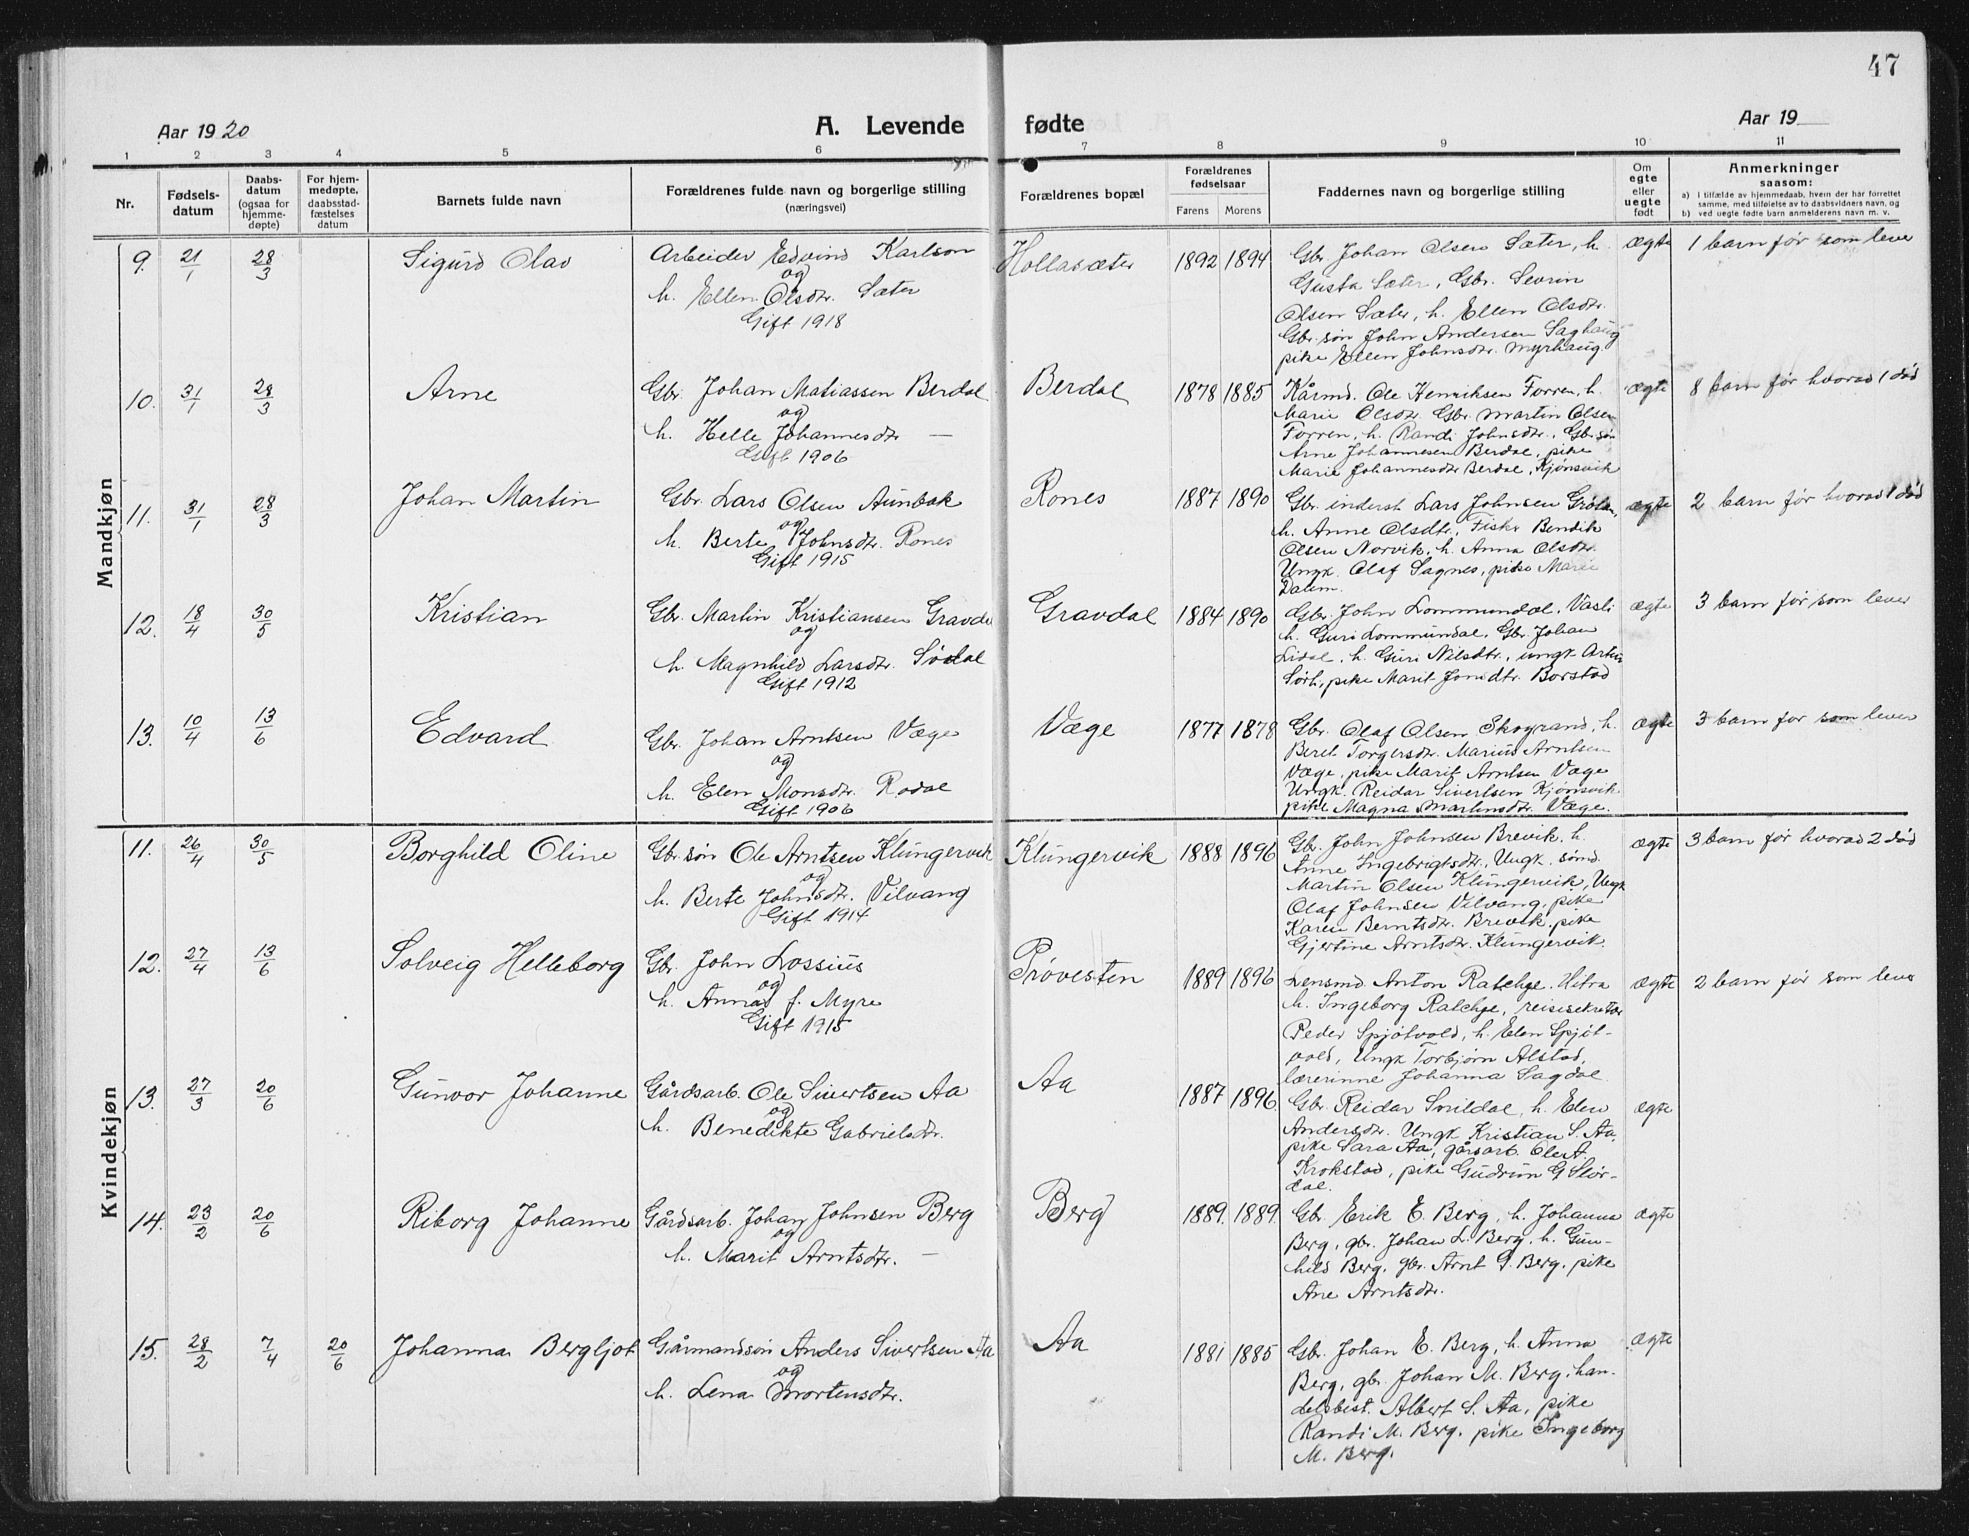 47
Aar 1920
A. Levende fødte
Aar 19
1 2 3 4 5 6 7 8 9 10 11
Nr.
Fødsels-
datum
Daabs-
datum
(ogsaa for
hjemme-
døpte)
For hjem-
medøpte,
daabsstad-
fæstelses
datum
Barnets fulde navn
Forældrenes fulde navn og borgerlige stilling
(næringsvei)
Forældrenes bopæl
Forældrenes
fødselsaar
Farens Morens
Faddernes navn og borgerlige stilling
Om
egte
eller
uegte
født
Anmerkninger
saasom:
a) i tilfælde av hjemmedaab, hvem der har forrettet
samme, med tilføielse av to daabsvidners navn, og
b) ved uegte fødte barn anmelderens navn m. v.
Mandkjøn
9. 21/1 28/3 Sigurd Olav
Arbeider Edvind Karlson
og
h. Ellen Olsdtr. Sæter
Gift 1918
Hollasæter 1892 1894
Gbr. Johan Olsen Sæter, h.
Gusta Sæter, Gbr. Sevrin
Olsen Sæter, h. Ellen Olsdtr.
Gbr. søn John Andersen Saghaug
pike Ellen Johnsdtr. Myrhaug.
ægte 1 barn før som lever
10. 31/1 28/3 Arne
Gbr. Johan Matiassen Berdal
og
h. Helle Johannesdtr —
Gift 1906
Berdal 1878 1885
Kårmd. Ole Henriksen Forren, h.
Marie Olsdtr. Gbr. Martin Olsen
Forren, h. Randi Johnsdtr., Gb. søn
Arne Johannesen Berdal, pike
Marie Johannesdtr Berdal, Kjønsvik
ægte 8 barn før hvorav 1 død
11. 31/1 28/3 Johan Martin
Gbr. Lars Olsen Aunbak
og
h. Berte Johnsdtr. Rones
Gift 1915
Rones 1887 1890
Gbr. inderst Lars Johnsen
h. Anne Olsdtr, Fisker Bendik
Olsen Norvik, h. Anna Olsdtr.
Ungk. Olaf Sagnes, pike Marie
Dalum.
ægte 2 barn før hvorav 1 død
12. 18/4 30/5 Kristian
Gbr. Martin Kristiansen Gravdal
og
h. Magnhild Larsdtr. Södal
Gift 1912
Gravdal 1884 1890
Gbr. John Lommundal, Vasli
h. Guri Lommundal, Gbr. Johan
Lidal, h. Guri Nilsdtr., ungk.
pike Marit Jonsdtr. Borstad
ægte 3 barn før som lever
13. 10/4 13/6 Edvard
Gbr. Johan Arntsen Væge
og
h. Elen Monsdtr. Rodal
Gift 1906
Væge 1877 1878
Gbr. Olaf Olsen Skogrand, h.
Beret Torgersdtr. Marius Arntsen
Væge, pike Marit Arntsen Væge
Ungk. Reidar Sivertsen Kjønsvik
pike Magna Martinsdtr. Væge.
ægte 3 barn før som lever
Kvindekjøn
11. 26/4 30/5 Borghild Oline
Gbr. søn Ole Arntsen Klungervik
og
h. Berte Johnsdtr. Vilvang
Gift 1914
Klungervik 1888 1896
Gbr. John Johnsen Brevik, h.
Anne Ingebrigtsdtr., Ungk. sømd.
Martin Olsen Klungervik, Ungk
Olaf Johnsen Vilvang, pike
Karen Berntsdtr. Brevik, pike
Gjertine Arntsdtr. Klungervik.
ægte 3 barn før hvorav 2 død
12. 27/4 13/6 Solveig Helleborg
Gbr. John Lossius
og
h. Anna f. Myre
Gift 1915
Prøvesten 1889 1896
Lensmd Anton Ratchje. Hitra
h. Ingeborg Ratchje, reisesekretær
Peder Spjötvold, h. Elen Spjöt-
vold, Ungk Torbjørn Alstad,
lærerinne Johanna Sagdal.
ægte 2 barn før som lever
13. 27/3 20/6 Gunvor Johanne
Gårdsarb. Ole Sivertsen Aa
og
h. Benedikte Gabrielsdtr.
Aa 1887 1896
Gbr. Reidar Snildal, h. Elen
Andersdtr. Ungk Kristian S. Aa,
pike Sara Aa, gårsarb. Ole A
Krokstad, pike Gudrun G Stör-
dal.
ægte
14. 23/2 20/6 Riborg Johanne
Gårdsarb. Johan Johnsen Berg
og
h. Marit Arntsdtr. —
Berg 1889. 1889.
Gbr. Erik E. Berg, h. Johanna
Berg, gbr. Johan L. Berg, h. Gun-
hild Berg, gbr. Arnt G. Berg, pike
Ane Arntsdtr.
ægte
15. 28/2 7/4 20/6 Johanna Bergljot
Gårmandsøn Anders Sivertsen Aa
og
h. Lena Mortensdtr.
Aa 1881 1885
Gbr. Johan E. Berg, h. Anna
Berg, gbr. Johan M. Berg, han-
delsbest. Albert S. Aa, pike
Randi M. Berg, pike Ingeborg
M. Berg.
ægte